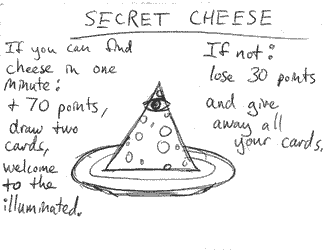 SECRET CHEESE
If you can find
cheese in one
minute:
+ 70 points,
draw two
cards,
welcome
to the
illuminated.
If not:
lose 30 points
and give
away all
your cards.